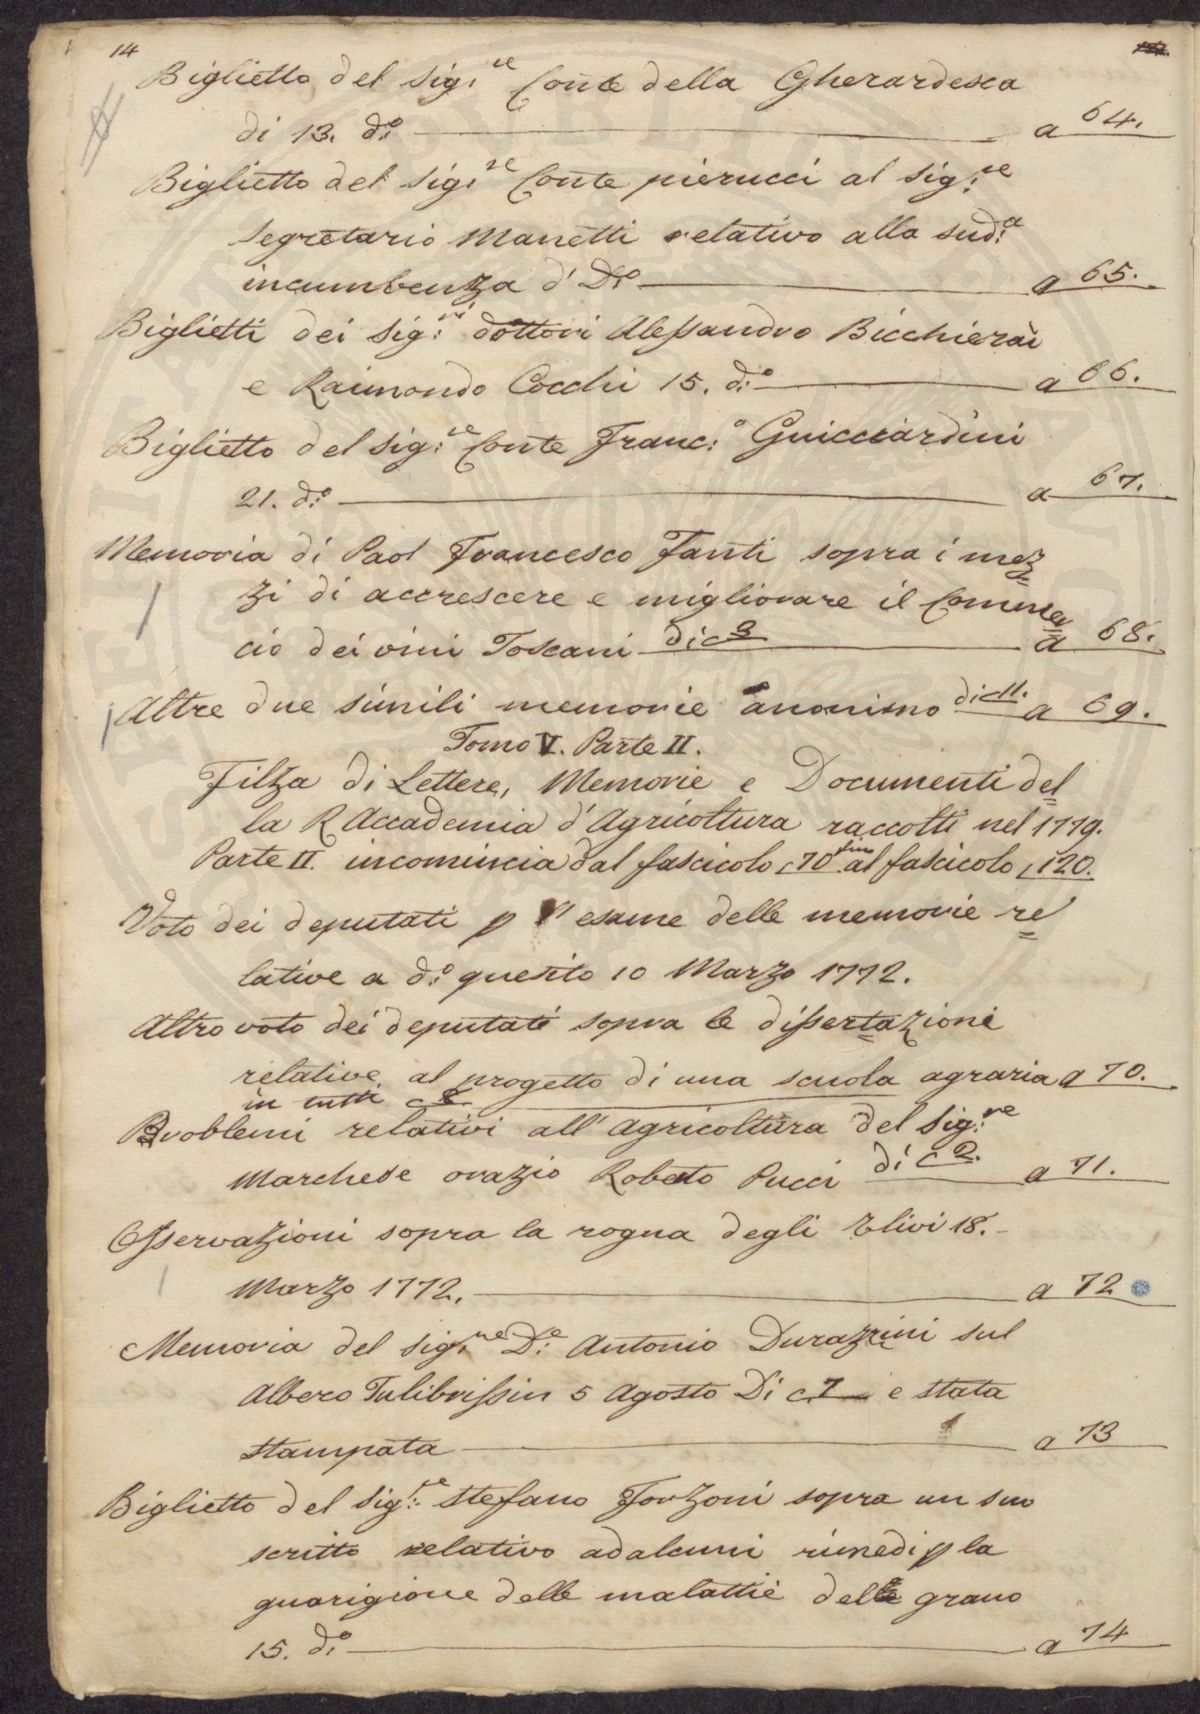 14
Biglietto del Sig:re Conte della Gherardesca
di 13. d:o a 64.
Biglietto del Sig:re Conte pierucci al Sig:re
Segretario Manetti relativo alla sud:a
incumbenza d' D:o a 65.
Biglietti dei Sig:ri dottori Alessandro Bicchierai
e Raimondo Cocchi 15. d:o a 66.
Biglietto del Sig:re Conte Franc:o Guicciardini
21. d:o a 67.
Memoria di Paol Francesco Fanti sopra i mez=
zi di accrescere e migliorare il Commer=
cio dei vini Toscani di c 3 a 68.
Altre due simili memorie anonimo di c 11. a 69.
Tomo V. Parte II.
Filza di Lettere, Memorie e Documenti del=
la R Accademia d'Agricoltura raccolti nel 1779.
Parte II. incomincia dal fascicolo, 70 fino al fascicolo, 120.
Voto dei deputati p l' esame delle memorie re=
lative a d:o quesito 10 Marzo 1772.
Altro voto dei deputati sopra le dissertazioni
relative al progetto di una scuola agraria a 70.
in tutti c 8.
Problemi relativi all' Agricoltura del Sig:re
Marchese orazio Roberto Pucci di c 2. a 71.
Osservazioni sopra la rogna degli Ulivi 18.
Marzo 1772. a 72
Memoria del Sig:re D:e Antonio Durazzini sul
Albero Tulibrissin 5 Agosto Di c. 7 e stata
stampata a 73
Biglietto del Sig:re Stefano Forzoni sopra un suo
scritto relativo ad alcuni rimedi p la
guarigione delle malattie delle grano
15. d:o a 74